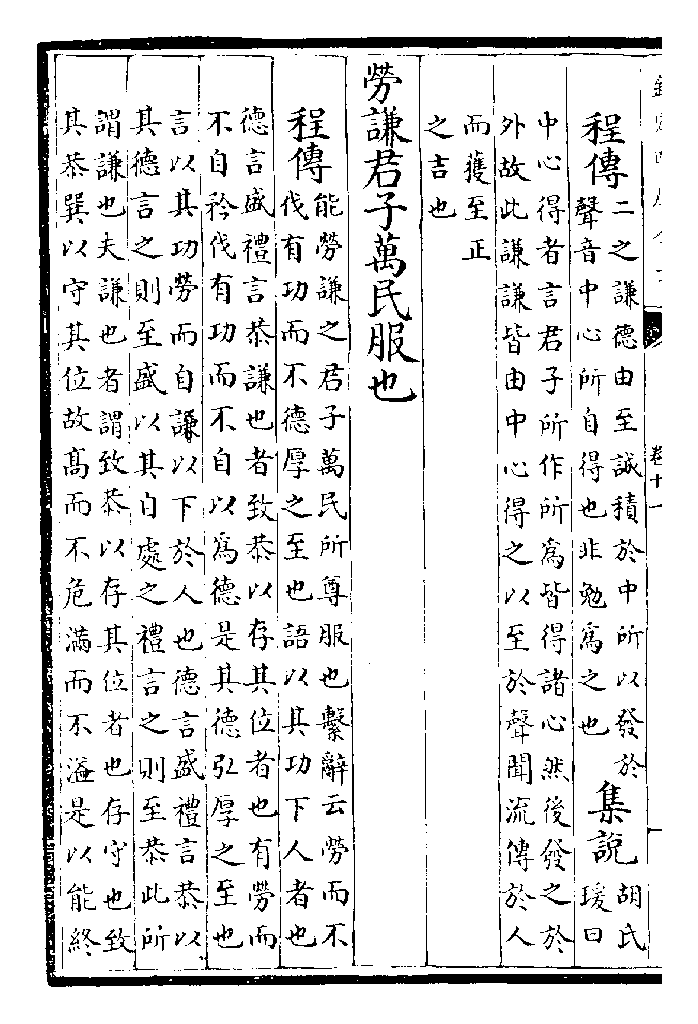 卷十一
程傳
二之謙德由至誠積於中所以發於
聲音中心所自得也非勉為之也
集說
胡氏
瑗曰
中心得者言君子所作所為皆得諸心然後發之於
外故此謙謙皆由中心得之以至於聲聞流傳於人
而獲至正
之吉也
勞謙君子萬民服也
程傳
能勞謙之君子萬民所尊服也繫辭云勞而不
伐有功而不德厚之至也語以其功下人者也
德言盛禮言恭謙也者致恭以存其位者也有勞而
不自矜伐有功而不自以為德是其德弘厚之至也
言以其功勞而自謙以下於人也德言盛禮言恭以
其德言之則至盛以其自處之禮言之則至恭此所
謂謙也夫謙也者謂致恭以存其位者也存守也致
其恭巽以守其位故髙而不危滿而不溢是以能終